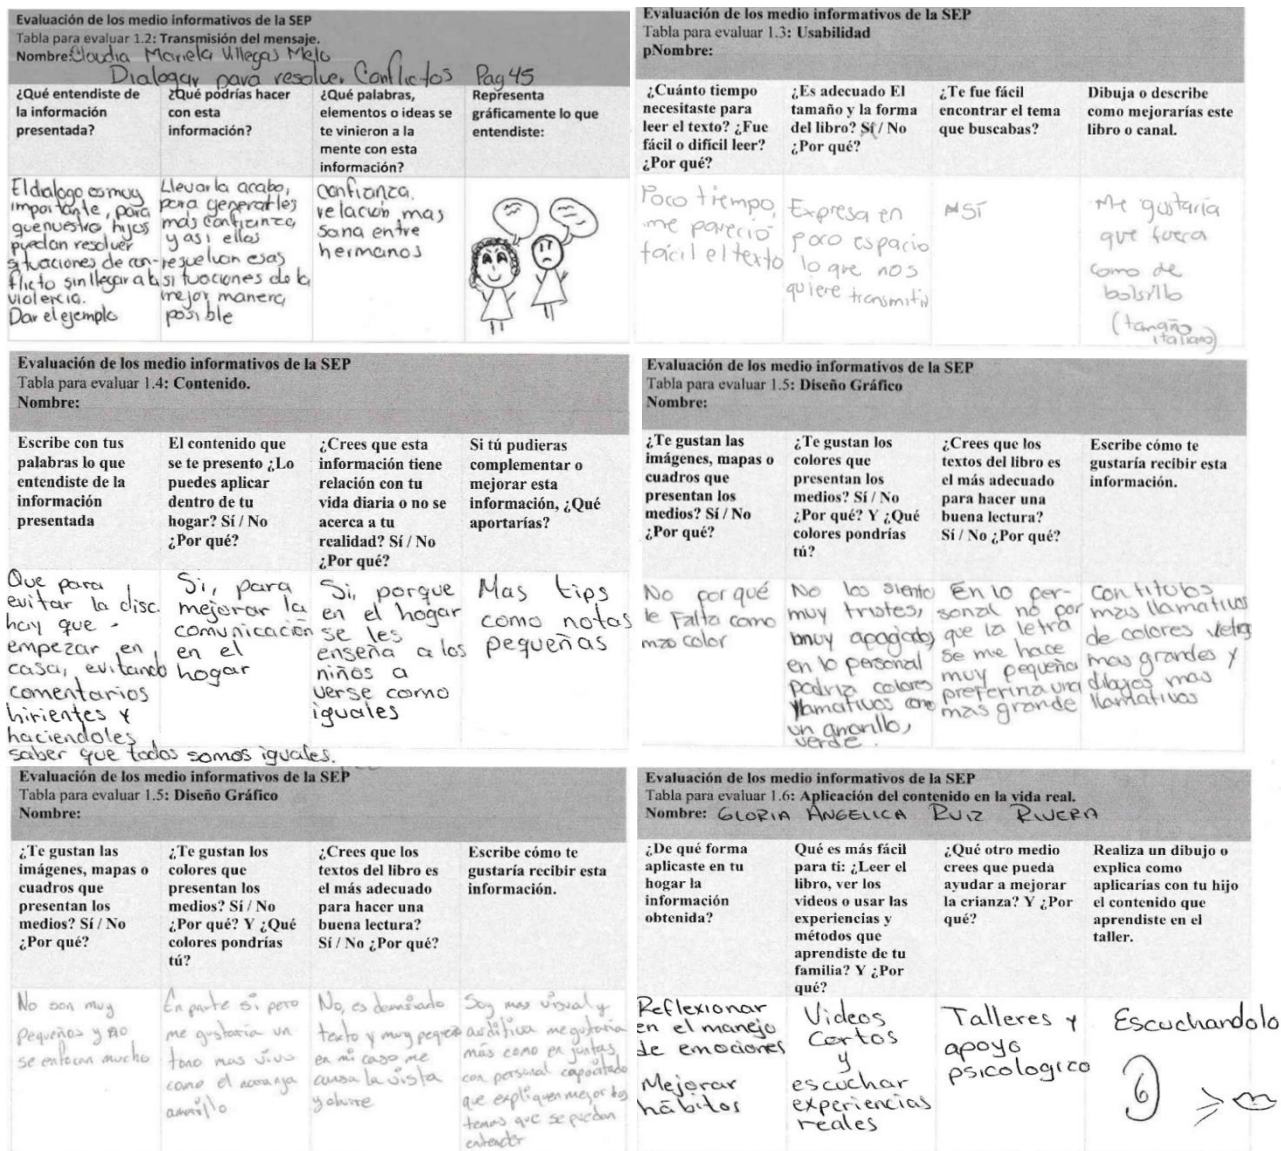 Evaluación de los medio informativos de la SEP
Tabla para evaluar 1.2: Transmisión del mensaje.
Nombre: Claudia Mariela Villegas Melo
Dialogar para resolver Conflictos Pag 45
¿Qué entendiste de
la información
presentada?
¿Qué podrías hacer
con esta
información?
¿Qué palabras,
elementos o ideas se
te vinieron a la
mente con esta
información?
Representa
gráficamente lo que
entendiste:
El dialogo es muy
importante, para
que nuestro hijos
puedan resolver
situaciones de con-
flicto sin llegar a la
violencia.
Dar el ejemplo
Llevarla acabo,
para generarles
más confianza
y asi ellos
resuelvan esas
situaciones de la
mejor manera
posible
Confianza.
relación mas
sana entre
hermanos
Evaluación de los medio informativos de la SEP
Tabla para evaluar 1.3: Usabilidad
pNombre:
¿Cuánto tiempo
necesitaste para
leer el texto? ¿Fue
fácil o difícil leer?
¿Por qué?
¿Es adecuado El
tamaño y la forma
del libro? Sí / No
¿Por qué?
¿Te fue fácil
encontrar el tema
que buscabas?
Dibuja o describe
como mejorarías este
libro o canal.
Poco tiempo,
me pareció
fácil el texto
Expresa en
poco espacio
lo que nos
quiere transmitir
Sí
Me gustaría
que fuera
como de
bolsillo
(tamaño
italiano)
Evaluación de los medio informativos de la SEP
Tabla para evaluar 1.4: Contenido.
Nombre:
Escribe con tus
palabras lo que
entendiste de la
información
presentada
El contenido que
se te presento ¿Lo
puedes aplicar
dentro de tu
hogar? Sí / No
¿Por qué?
¿Crees que esta
información tiene
relación con tu
vida diaria o no se
acerca a tu
realidad? Sí / No
¿Por qué?
Si tú pudieras
complementar o
mejorar esta
información, ¿Qué
aportarías?
Que para
evitar la disc.
hay que -
empezar en
casa, evitando
comentarios
hirientes y
haciendoles
saber que todos somos iguales.
Si, para
mejorar la
comunicación
en el
hogar
Si, porque
en el hogar
se les
enseña a los
niños a
verse como
iguales
Mas tips
como notas
pequeñas
Evaluación de los medio informativos de la SEP
Tabla para evaluar 1.5: Diseño Gráfico
Nombre:
¿Te gustan las
imágenes, mapas o
cuadros que
presentan los
medios? Sí / No
¿Por qué?
¿Te gustan los
colores que
presentan los
medios? Sí / No
¿Por qué? Y ¿Qué
colores pondrías
tú?
¿Crees que los
textos del libro es
el más adecuado
para hacer una
buena lectura?
Sí / No ¿Por qué?
Escribe cómo te
gustaría recibir esta
información.
No porqué
le Falta como
mas color
No los siento
muy tristes,
muy apagados,
en lo personal
podria colores
llamativos como
un amarillo,
verde.
En lo per-
sonal no por
que la letra
se me hace
muy pequeña
preferiria una
mas grande
Con titulos
mas llamativos
de colores letra
mas grandes y
dibujos mas
llamativos
Evaluación de los medio informativos de la SEP
Tabla para evaluar 1.5: Diseño Gráfico
Nombre:
¿Te gustan las
imágenes, mapas o
cuadros que
presentan los
medios? Sí / No
¿Por qué?
¿Te gustan los
colores que
presentan los
medios? Sí / No
¿Por qué? Y ¿Qué
colores pondrías
tú?
¿Crees que los
textos del libro es
el más adecuado
para hacer una
buena lectura?
Sí / No ¿Por qué?
Escribe cómo te
gustaría recibir esta
información.
No son muy
pequeños y no
se enfocan mucho
En parte si pero
me gustaria un
tono mas vivo
como el naranja
amarillo
No, es demasiado
texto y muy pequeño
en mi caso me
cansa la vista
y aburre
Soy mas visual y
auditiva me gustaria
más como en juntas
con personal capacitado
que expliquen mejor los
temas que se puedan
entender
Evaluación de los medio informativos de la SEP
Tabla para evaluar 1.6: Aplicación del contenido en la vida real.
Nombre: GLORIA ANGELICA RUIZ RIVERA
¿De qué forma
aplicaste en tu
hogar la
información
obtenida?
Qué es más fácil
para ti: ¿Leer el
libro, ver los
videos o usar las
experiencias y
métodos que
aprendiste de tu
familia? Y ¿Por
qué?
¿Qué otro medio
crees que pueda
ayudar a mejorar
la crianza? Y ¿Por
qué?
Realiza un dibujo o
explica como
aplicarías con tu hijo
el contenido que
aprendiste en el
taller.
Reflexionar
en el manejo
de emociones
Mejorar
hábitos
Videos
Cortos
y
escuchar
experiencias
reales
Talleres y
apoyo
psicologico
Escuchandolo